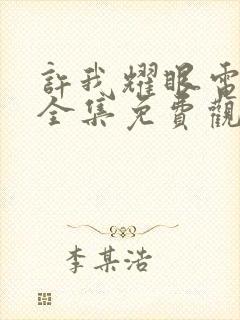 許我耀眼電
全集免費觀
李某浩